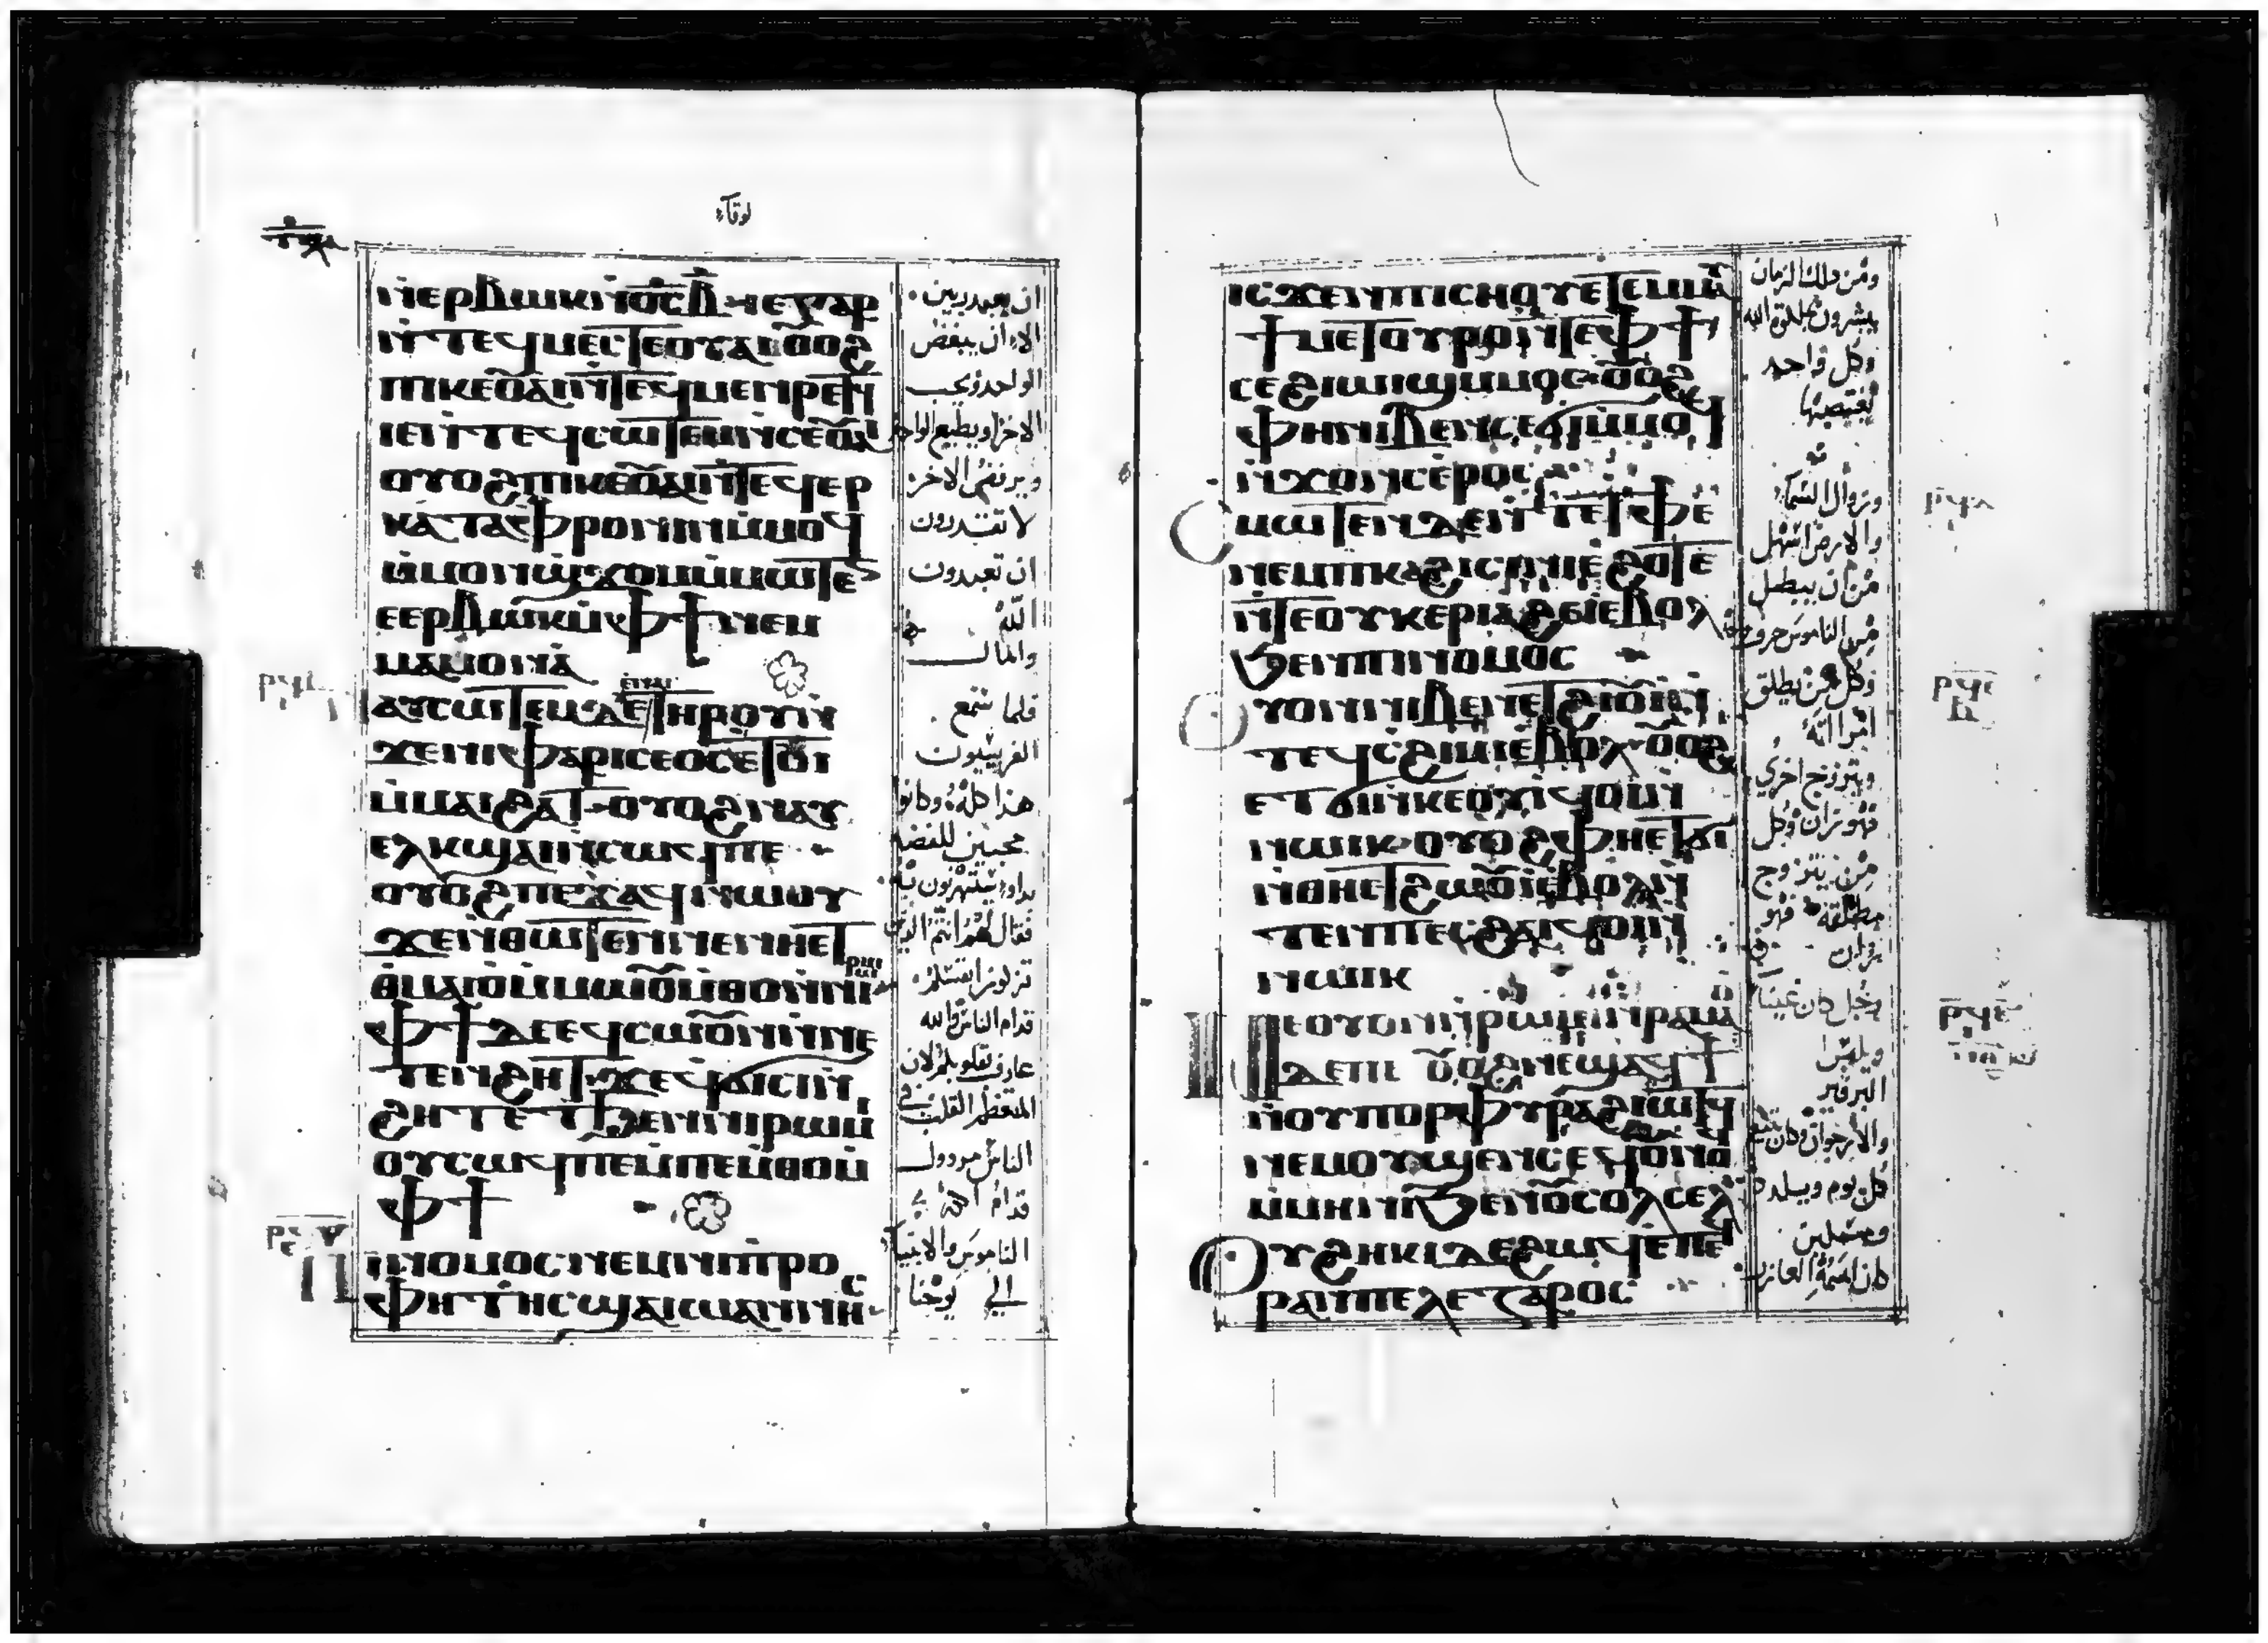 لوقا
ⲛⲉⲣⲃⲱⲕ ⲛ̀ⲟ̅ⲥ̅ ⲃ̅ ⲓⲉ ⲅⲁⲣ
ⲛ̀ⲧⲉϥⲙⲉⲥⲧⲉ ⲟⲩⲁⲓ ⲟⲩⲟϩ
ⲡⲓⲕⲉⲟⲩⲁⲓ ⲛ̀ⲧⲉϥⲙⲉⲛⲣⲉⲓⲧϥ
ⲓⲉ ⲛ̀ⲧⲉϥⲥⲱⲧⲉⲙ ⲛ̀ⲥⲉ ⲟⲩⲁⲓ
ⲟⲩⲟϩ ⲡⲓⲕⲉⲟⲩⲁⲓ ⲛ̀ⲧⲉϥⲉⲣ
ⲕⲁⲧⲁⲫⲣⲟⲛⲓⲛ ⲙ̀ⲙⲟϥ
ⲙ̀ⲙⲟⲛ ϣϫⲟⲙ ⲙ̀ⲙⲱⲧⲉⲛ
ⲉⲉⲣⲃⲱⲕ ⲙ̀ⲫϯ ⲛⲉⲙ
ⲙⲁⲙⲟⲛⲁ
ⲁⲩⲥⲱⲧⲉⲙ ⲇⲉ ⲉⲛⲁⲓ ⲧⲏⲣⲟⲩ ⲛ̀
ϫⲉ ⲛⲓⲫⲁⲣⲓⲥⲉⲟⲥ ⲉⲧⲟⲓ
ⲙ̀ⲙⲁⲓϩⲁⲧ ⲟⲩⲟϩ ⲛⲁⲩ
ⲉⲗⲕϣⲁⲓ ⲛ̀ⲥⲱϥ ⲡⲉ
ⲟⲩⲟϩ ⲡⲉϫⲁϥ ⲛⲱⲟⲩ
ϫⲉ ⲛ̀ⲑⲱⲧⲉⲛ ⲡⲉ ⲛⲏⲉⲧ
ⲑⲙⲁⲓⲟ ⲙ̀ⲙⲱⲟⲩ ⲙ̀ⲑⲟ ⲛ̀ⲛⲓⲣⲱⲙⲓ
ⲫϯ ⲇⲉ ⲉϥⲥⲱⲟⲩⲛ ⲛ̀ⲛⲉ
ⲧⲉⲛϩⲏⲧ ϫⲉ ϥϭⲓⲥⲓ ⲛ̀
ϩⲏⲧ ⲉⲧϧⲉⲛ ⲛⲓⲣⲱⲙⲓ
ⲟⲩⲥⲱϥ ⲡⲉ ⲙ̀ⲡⲉⲙ̀ⲑⲟ ⲙ̀
ⲫϯ
ⲡⲓⲛⲟⲙⲟⲥ ⲛⲉⲙ ⲛⲓⲡⲣⲟ
ⲫⲏⲧⲏⲥ ϣⲁ ⲓⲱⲁⲛⲛⲏⲥ
ان يعبد ربين
الا ان يبغض
الواحد ويحب
الاخر او يطيع الواحد
ويرفض الاخر
لا تقتدرون
ان تعبدون
الله
والمال
فلما سمع
الفريسيون
هذا كله وكانوا
محبين للفضه
فقال لهم انتم الذين
قدام الناس والله
عارف بقلوبكم لان
المتعظم القلب في
الناس مردول
قدام الله
الناموس والانبيا
الي يوحنا
ⲓⲥϫⲉⲛ ⲡⲓⲥⲏⲟⲩ ⲉⲧⲉⲙⲙⲁⲩ
ϯⲙⲉⲧⲟⲩⲣⲟ ⲛ̀ⲧⲉ ⲫϯ
ⲥⲉϩⲓⲱⲓϣ ⲙ̀ⲙⲟⲥ ⲟⲩⲟϩ
ⲫⲏ ⲛⲓⲃⲉⲛ ⲥⲉϭⲓ ⲙ̀ⲙⲟϥ
ⲛ̀ϫⲟⲛⲥ ⲉ̀ⲣⲟⲥ
ⲙⲟⲧⲉⲛ ⲇⲉ ⲛ̀ⲧⲉ ⲧⲫⲉ
ⲛⲉⲙ ⲡⲕⲁϩⲓ ⲥⲓⲛⲓ ⲉ̀ϩⲟⲧⲉ
ⲛ̀ⲧⲉ ⲟⲩⲕⲉⲣⲉⲁ ϩⲉⲓ ⲉ̀ⲃⲟⲗ
ϧⲉⲛ ⲡⲓⲛⲟⲙⲟⲥ
ⲟⲩⲟⲛ ⲛⲓⲃⲉⲛ ⲉⲧϩⲓⲟⲩⲓ ⲛ̀
ⲧⲉϥⲥϩⲓⲙⲓ ⲉ̀ⲃⲟⲗ ⲟⲩⲟϩ
ⲉⲧϭⲓ ⲛ̀ⲕⲉⲟⲩⲓ ϥⲟⲓ ⲛ̀
ⲛⲱⲓⲕ ⲟⲩⲟϩ ⲫⲏ ⲉⲧϭⲓ
ⲛ̀ⲑⲏ ⲉⲧϩⲱⲟⲩⲓ ⲉ̀ⲃⲟⲗ ϩⲓ
ⲧⲉⲛ ⲡⲉⲥϩⲁⲓ ϥⲟⲓ ⲛ̀
ⲛⲱⲓⲕ
ⲛⲉ ⲟⲩⲟⲛ ⲟⲩⲣⲱⲙⲓ ⲛ̀ⲣⲁⲙⲁⲟ
ⲇⲉ ⲡⲉ ⲟⲩⲟϩ ⲛⲉϣⲁϥϯ
ⲛ̀ⲟⲩⲡⲟⲣⲫⲩⲣⲁ ϩⲓⲱⲧϥ
ⲛⲉⲙ ⲟⲩϣⲉⲛⲥ ⲉϥⲟⲩⲛⲟϥ
ⲙ̀ⲙⲏⲛⲓ ϧⲉⲛ ⲟⲩⲥⲟⲗⲥⲉⲗ
ⲟⲩϩⲏⲕⲓ ⲇⲉ ϩⲱϥ ⲉ̀ⲡⲉϥ
ⲣⲁⲛ ⲡⲉ ⲗⲁⲍⲁⲣⲟⲥ
ومن ذلك الزمان
يبشرون بملكوة الله
وكل واحد
يغتصبها
وزوال السما
والارض اسهل
من ان يبطل
من الناموس حرف واحد
وكل من يطلق
امراته
ويتزوج اخري
فهو زان وكل
من يتزوج
مطلقة فهو
زان
رجل كان غنيا
ويلبس
البرفير
والارجوان وكان يتنعم
كل يوم ويلذذ
ومسكين
كان اسمه العازر